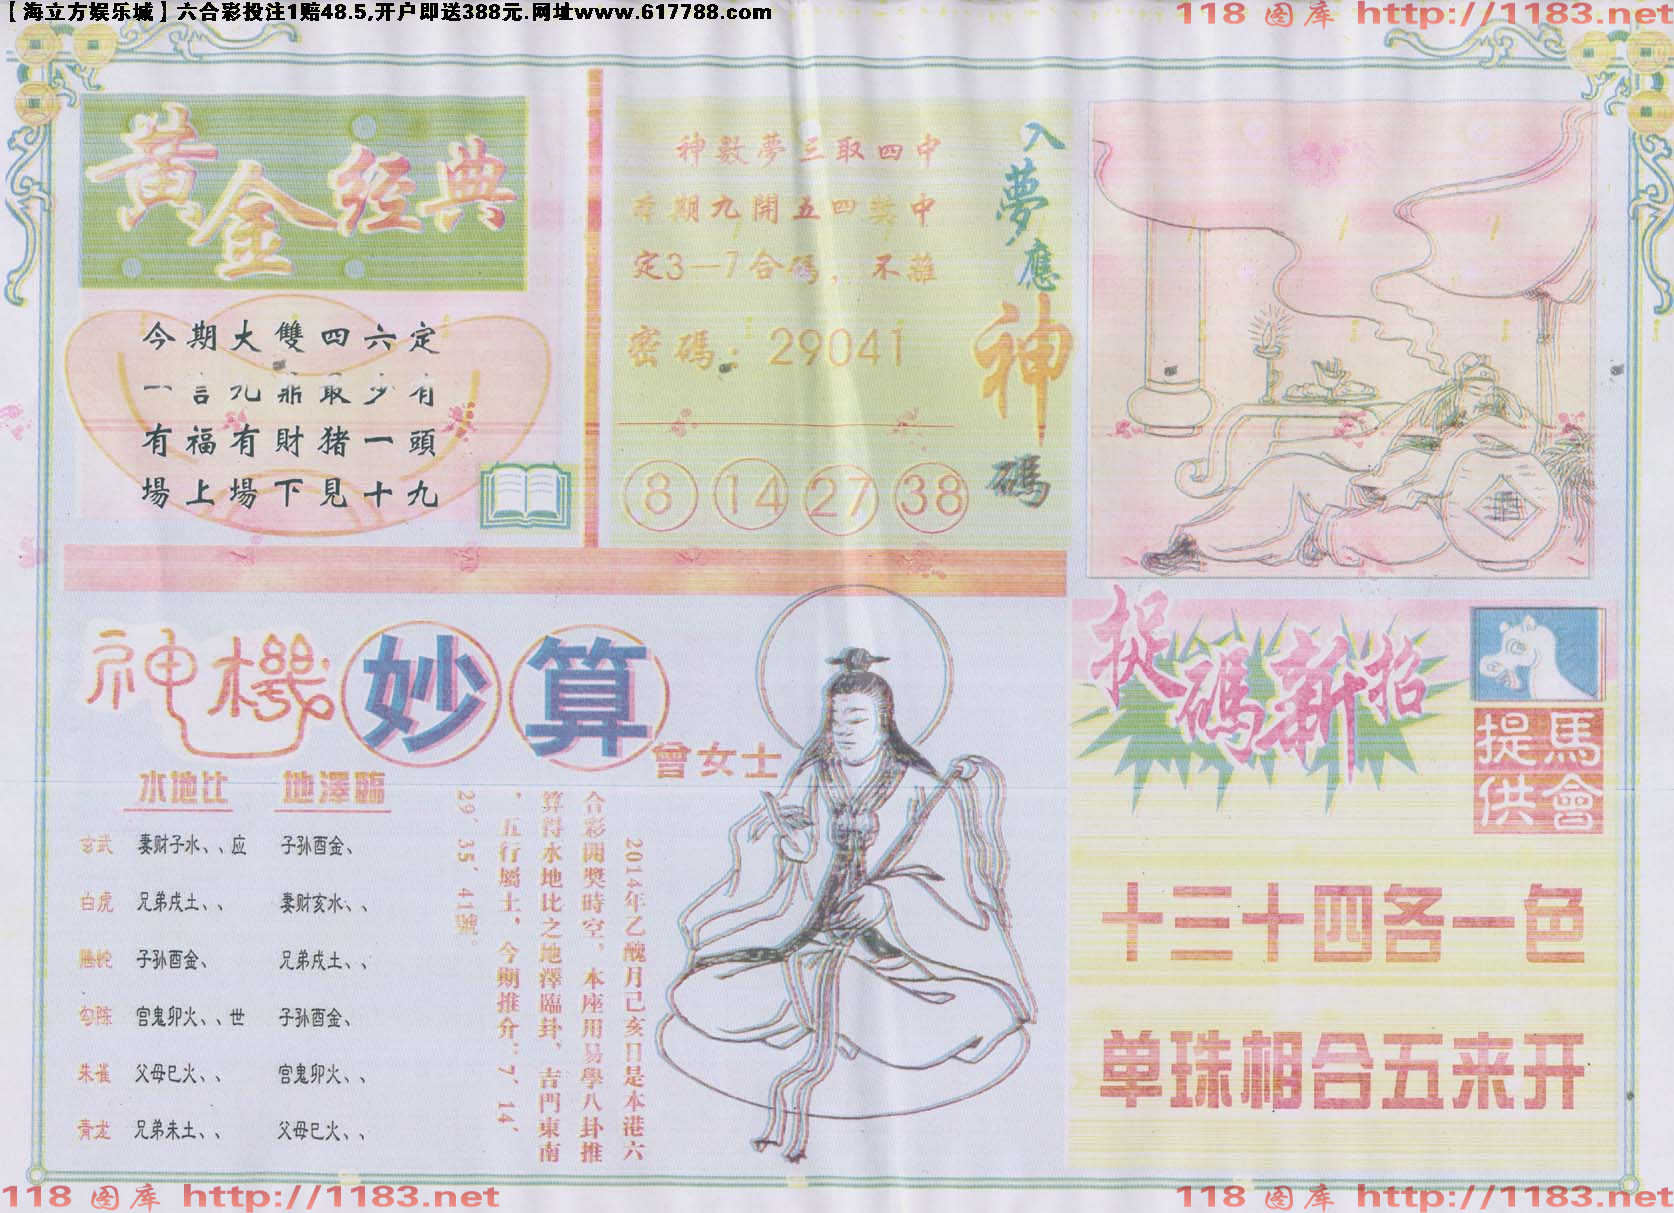 【海立方娱乐城】六合彩投注1赔48.5,开户即送388元.网址www.617788.com
118 图库 http://1183.net
黄金經典
今期大雙四六定
一言九鼎取少有
有福有財猪一頭
場上場下見十九
神數夢三取四中
本期九開五四獎中
定3—7合碼，不離
密碼：29041
8 14 27 38
入夢應神碼
神機妙算
曾女士
水地比 地澤臨
玄武 妻财子水、、应 子孙酉金、
白虎 兄弟戌土、、 妻财亥水、、
螣蛇 子孙酉金、 兄弟戌土、、
勾陈 官鬼卯火、、世 子孙酉金、
朱雀 父母巳火、、 官鬼卯火、、
青龙 兄弟未土、、 父母巳火、、
2014年乙醜月己亥日是本港六
合彩開獎時空，本座用易學八卦推
算得水地比之地澤臨卦、吉門東南
、五行屬土，今期推介：7、14、
29、35、41號。
捉碼新招
馬會提供
十三十四各一色
单珠相合五来开
118 图库 http://1183.net
118 图库 http://1183.net